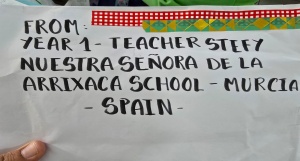 FROM:
YEAR 1 - TEACHER STEFY
NUESTRA SEÑORA DE LA
ARRIXACA SCHOOL - MURCIA
- SPAIN -